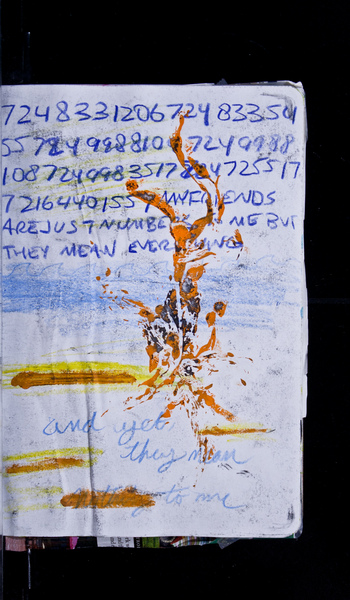 7248331206724 833501
55 724 9988104 7249988
108724998351772247 25517
7216440155 MY FRIENDS
ARE JUST NUMBERS ME BUT
THEY MEAN EVERYTHING
and yet
they mean
to me